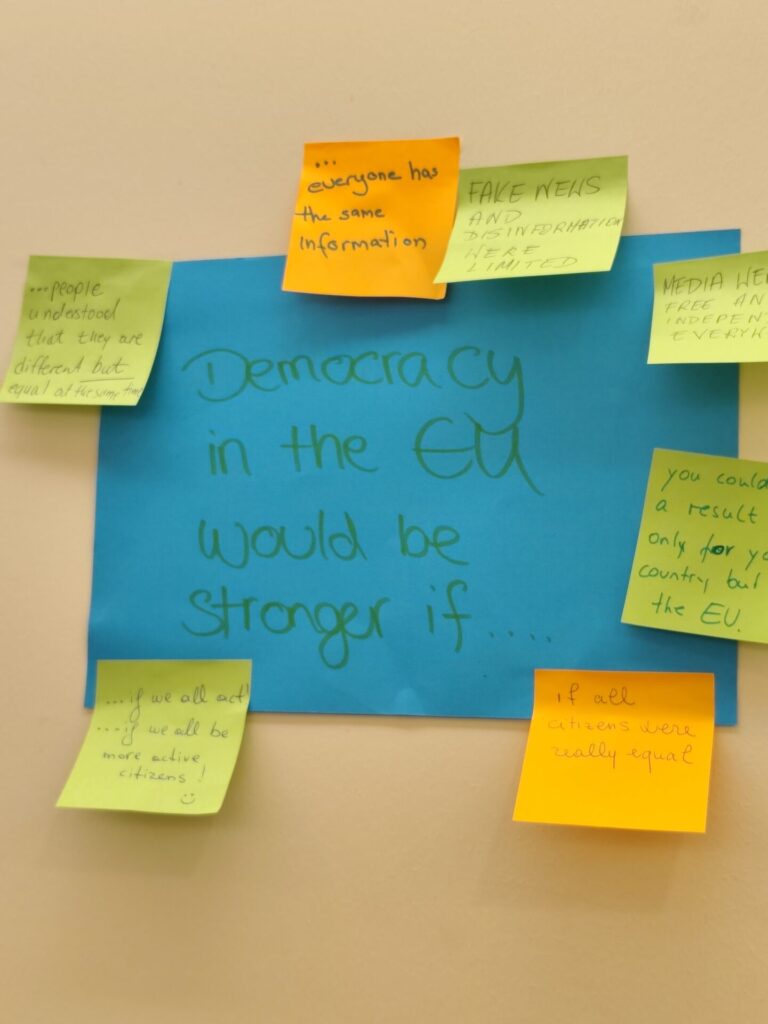 ...
everyone has
the same
information
FAKE NEWS
AND
DISINFORMATION
WERE
LIMITED
...people
understood
that they are
different but
equal at the same time
MEDIA
FREE
EVERYW
Democracy
in the EU
would be
stronger if ....
you could
a result
only for
country but
the EU.
...if we all act!
...if we all be
more active
citizens!
☺
if all
citizens were
really equal